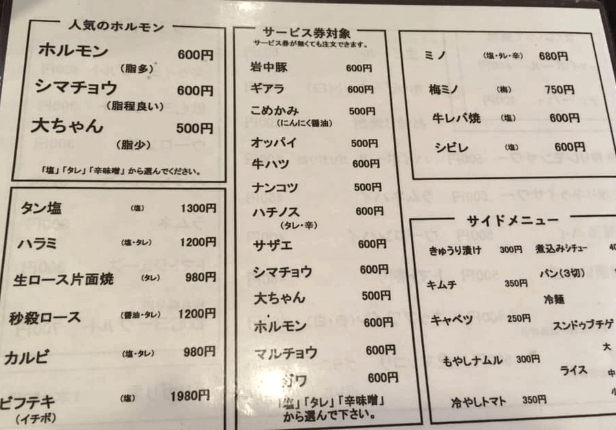 人気のホルモン
ホルモン 600円
(脂多)
シマチョウ 600円
(脂程良い)
大ちゃん 500円
(脂少)
「塩」「タレ」「辛味噌」から選んでください。
タン塩 (塩) 1300円
ハラミ (塩・タレ) 1200円
生ロース片面焼 (タレ) 980円
秒殺ロース (醤油・タレ) 1200円
カルビ (塩・タレ) 980円
ビフテキ (塩) 1980円
(イチボ)
サービス券対象
サービス券が無くても注文できます。
岩中豚 600円
ギアラ 600円
こめかみ 500円
(にんにく醤油)
オッパイ 500円
牛ハツ 600円
ナンコツ 500円
ハチノス 600円
(タレ・辛)
サザエ 600円
シマチョウ 600円
大ちゃん 500円
ホルモン 600円
マルチョウ 600円
ガワ 600円
「塩」「タレ」「辛味噌」
から選んで下さい。
ミノ (塩・タレ・辛) 680円
梅ミノ (梅) 750円
牛レバ焼 (塩) 600円
シビレ (塩) 600円
サイドメニュー
きゅうり漬け 300円
キムチ 350円
キャベツ 250円
もやしナムル 300円
冷やしトマト 350円
煮込みシチュー
パン(3切)
冷麺
スンドゥブチゲ
大
ライス 中